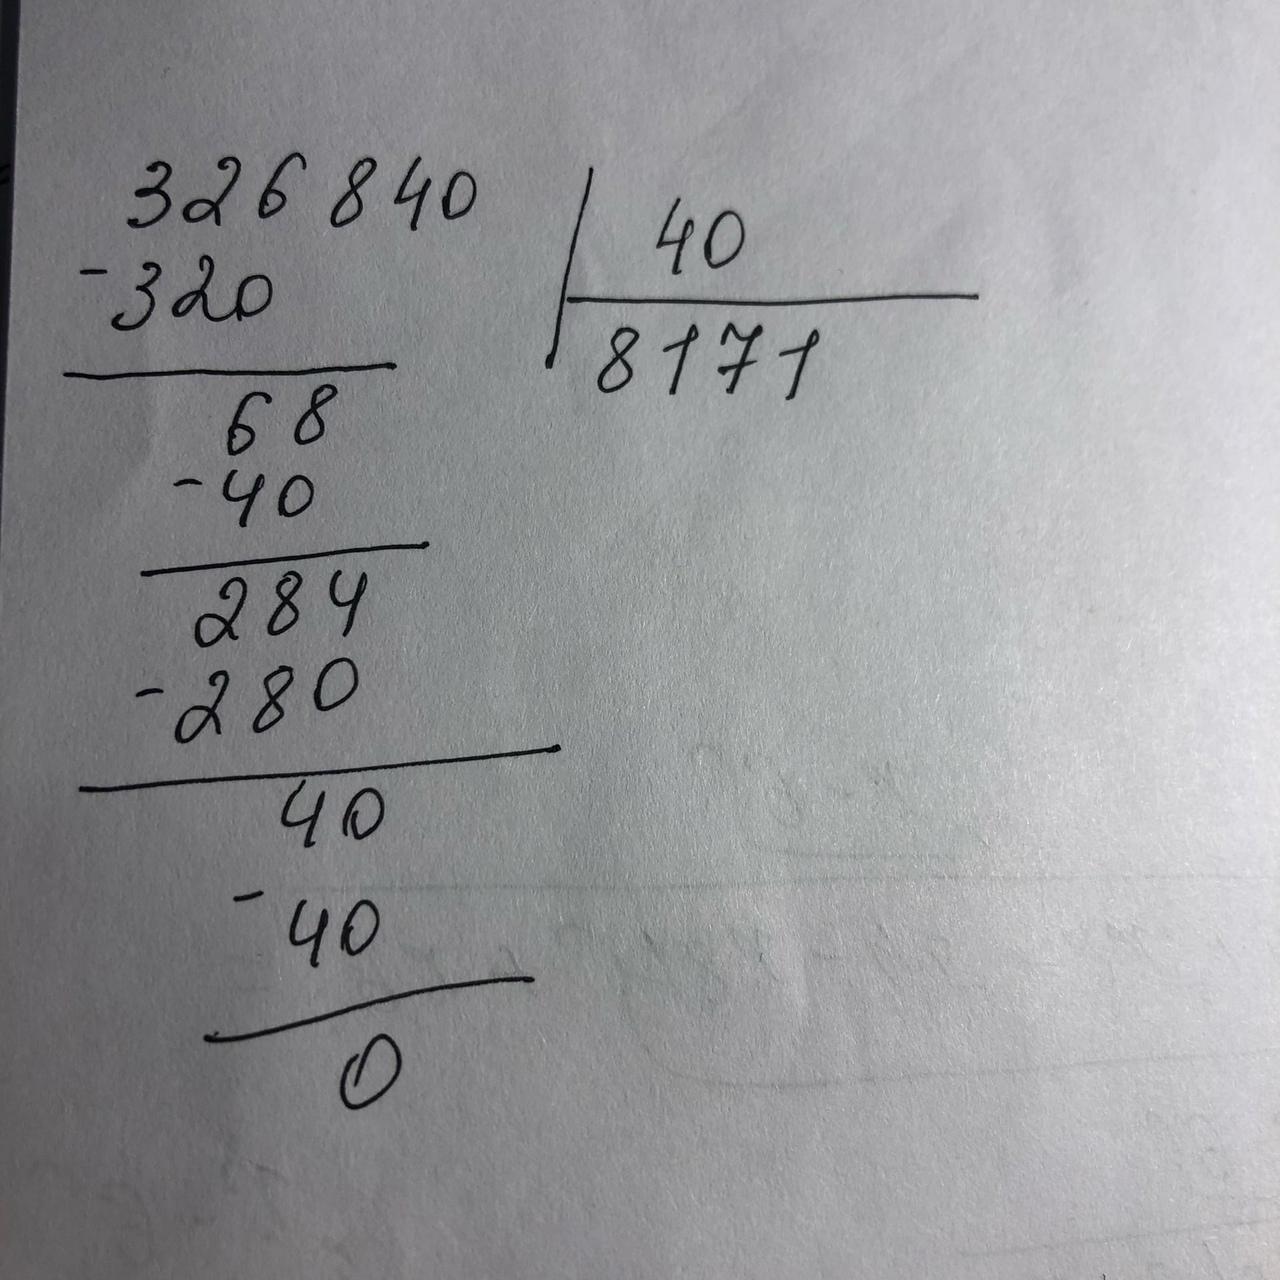 326840
40
-320
8171
68
-40
284
-280
40
-
40
0